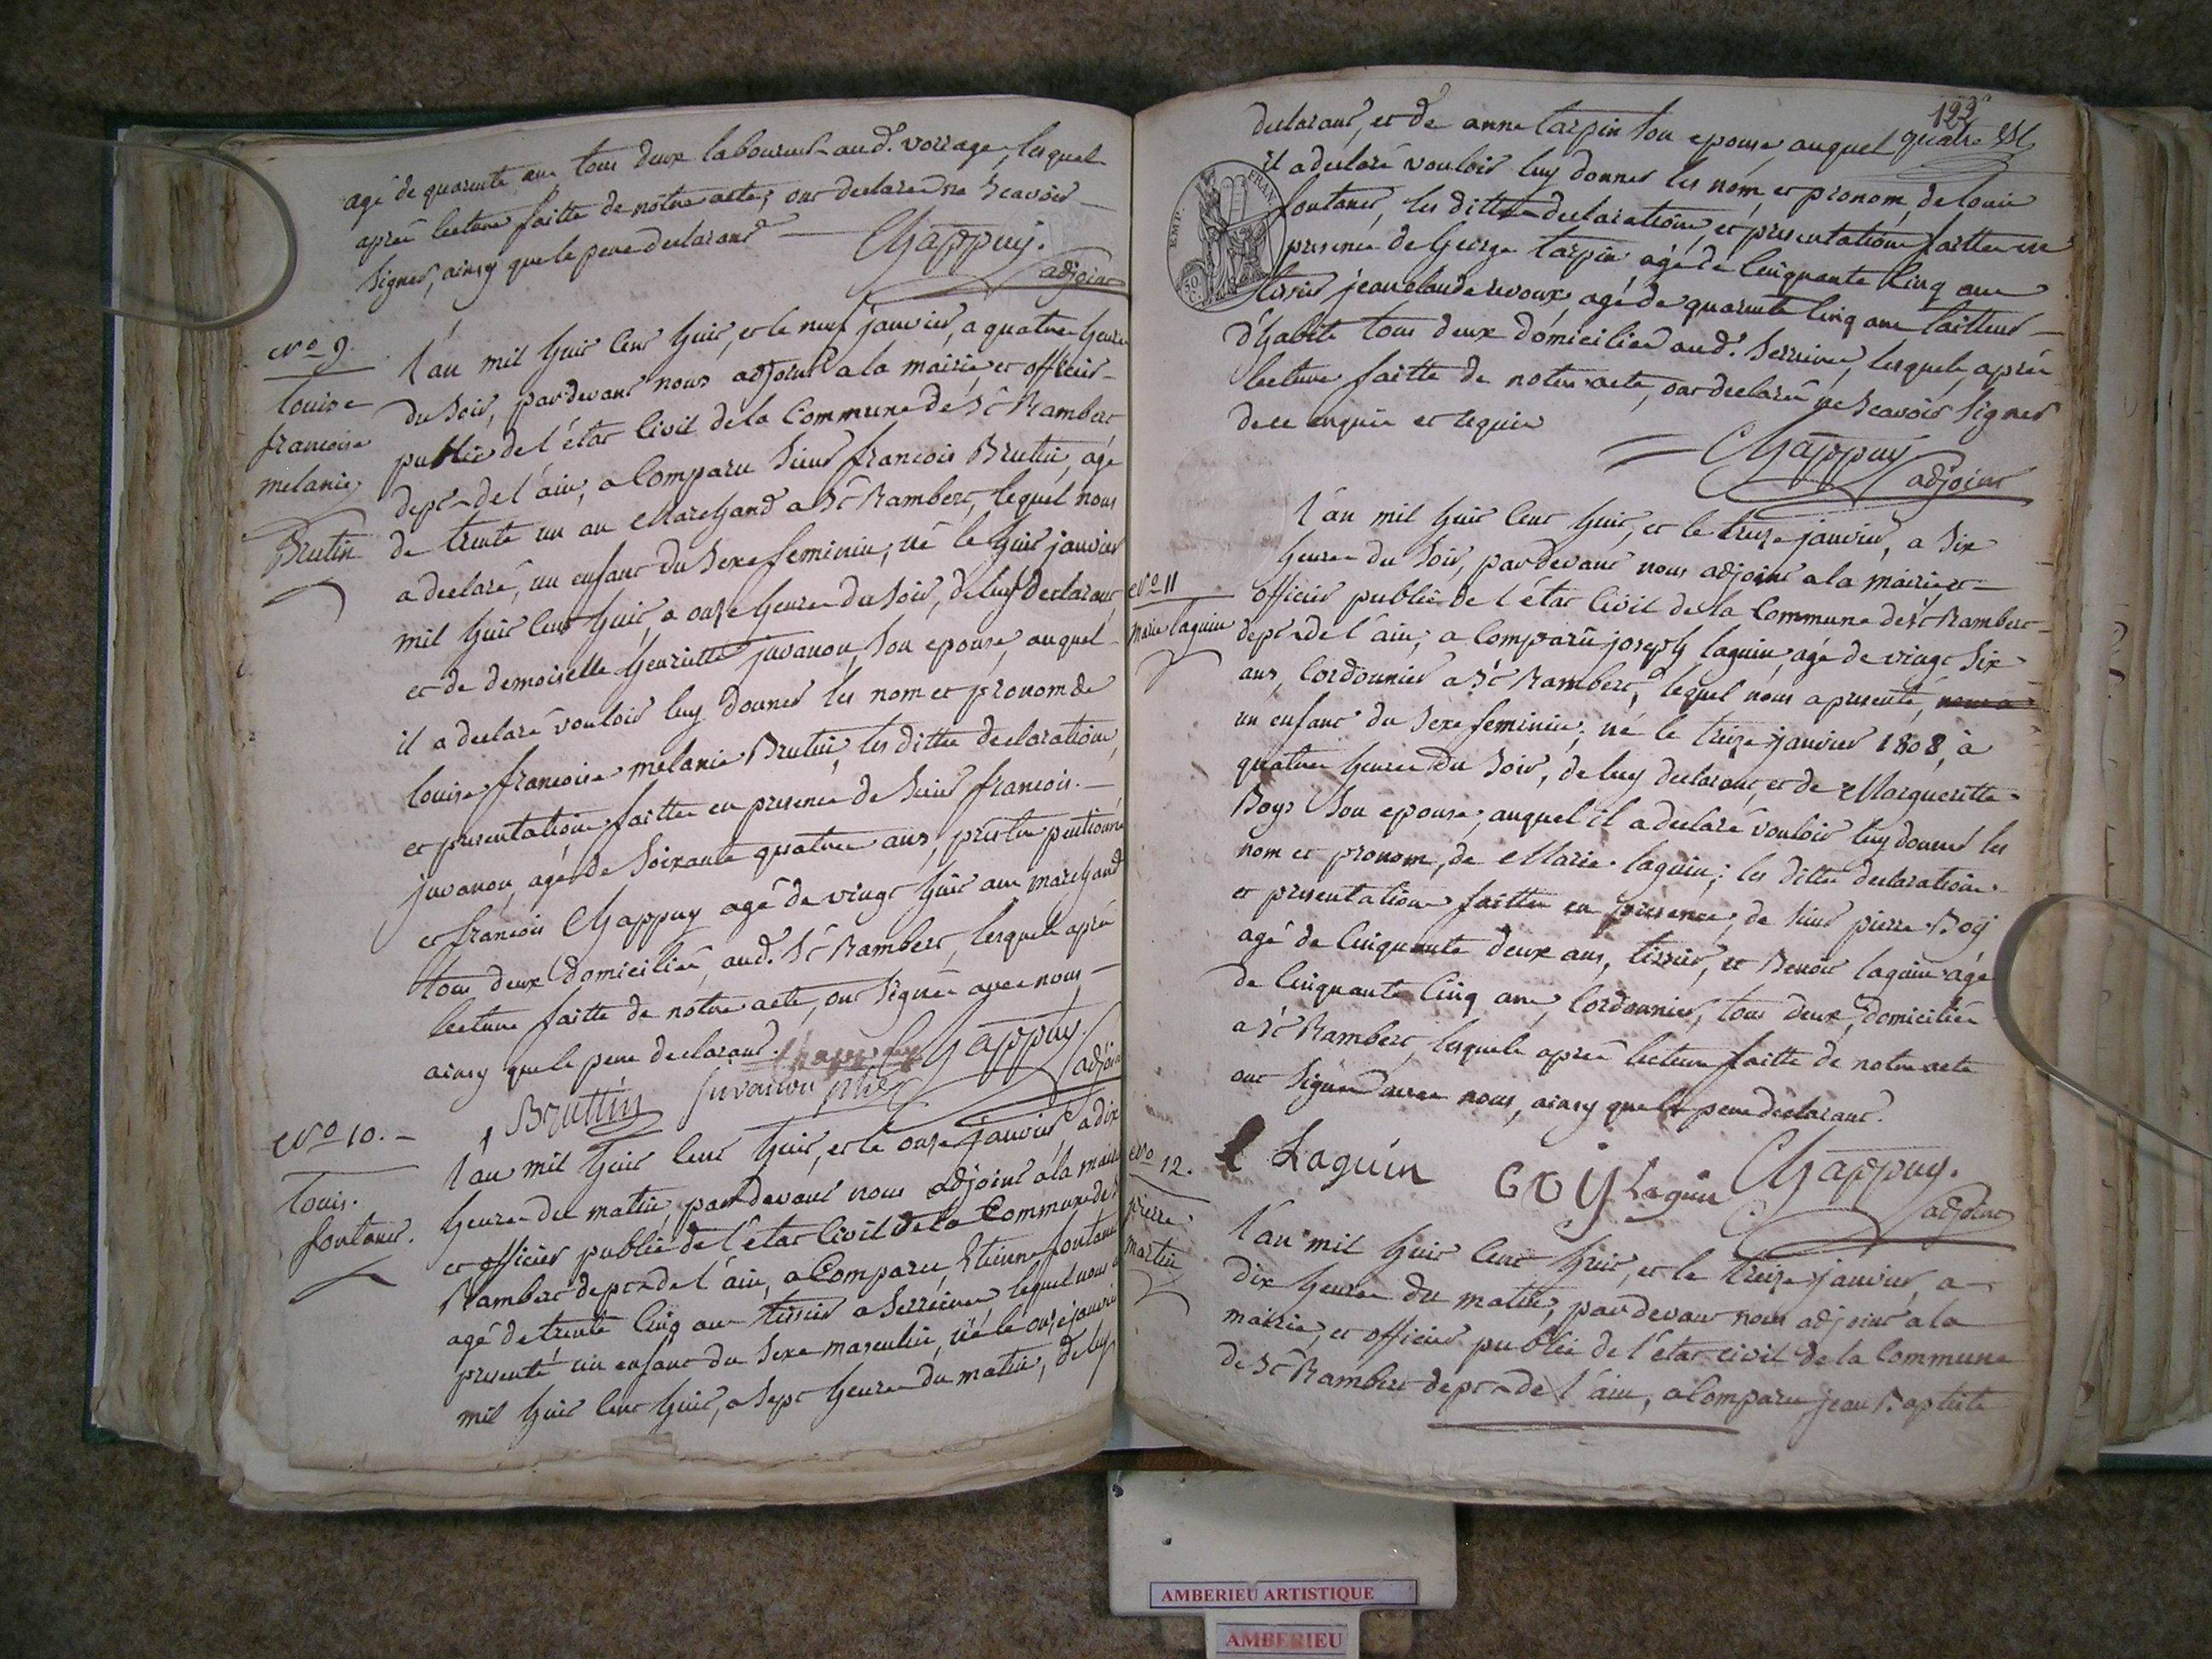 agé de quarante ans tous deux laboureurs aud. vorrage, lesquels
après lecture faitte de notre acte, ont declaré ne scavoir
signer, ainsy que le pere declarant
Chappuy.
adjoint
No 9.
Louise
francoise
melanie
Brutin
L'an mil huit cent huit, et le neuf janvier, a quatre heures
du soir, pardevant nous adjoint a la mairie et officier
public de l'état civil de la Commune de St Rambert
dept de l'ain, a Comparu sieur francois Bruttin, agé
de trente un an Marchand a St Rambert, lequel nous
a declaré, un enfant du sexe feminin, né le huit janvier
mil huit cent huit, a onze heures du soir, de luy declarant
et de demoiselle henriette juvanon, son epouse, auquel
il a declaré vouloir luy donner les nom et pronom de
louise francoise melanie Brutin, les dittes declaration
et presentation faittes en presence de sieur francois
juvanon, agé de soixante quatre ans, prêtre pentionné
et francois Chappuy agé de vingt huit ans marchand
tous deux domiciliés, aud. St Rambert, lesquels après
lecture faitte de notre acte, ont signés avec nous
ainsy que le pere declarant.
Chappuy
adjoint
Bruttin juvanon ptre
No 10.
Louis.
fontanet.
L'an mil huit cent huit, et le onze janvier, a dix
heures du matin, pardevant nous adjoint a la mairie
et officier public de l'état civil de la Commune de St
Rambert dept de l'ain, a Comparu Etienne fontanet
agé de trente cinq ans tissier a Serrieres, lequel nous a
presenté un enfant du sexe masculin, né le onze janvier
mil huit cent huit, a sept heures du matin, de luy
122
quatre
declarant, et de anne tarpin son epouse, auquel
il a declaré vouloir luy donner les nom, et pronom, de louis
EMP. FRAN.
50 C.
fontanet, les dittes declarations, et presentation faittes en
presence de George tarpin agé de cinquante cinq ans
tissier jean claude revoux, agé de quarante cinq ans tailleur
d'habits tous deux domiciliés aud. Serrieres, lesquels, après
lecture faitte de notre acte, ont declaré ne scavoir signer
de ce enquis et requis
Chappuy
adjoint
No 11
Marie laguin
L'an mil huit cent huit, et le treize janvier, a six
heures du soir, pardevant nous adjoint a la mairie, et
officier public de l'état civil de la Commune de St Rambert
dept de l'ain, a Comparu joseph laguin, agé de vingt six
ans, Cordonnier a St Rambert, lequel nous a presenté, nous a
un enfant du sexe feminin, né le treize janvier 1808, à
quatre heures du soir, de luy declarant, et de Marguerite
Boys son epouse, auquel il a declaré vouloir luy donner les
nom et pronom, de Marie laguin; les dittes declaration
et presentation faittes en presence, de sieur pierre Boÿ
agé de cinquante deux ans, tissier, et Benoit laguin agé
de cinquante cinq ans, Cordonnier, tous deux, domiciliés
a St Rambert, lesquels après lecture faitte de notre acte
ont signés avec nous, ainsy que le pere declarant.
Laguin GOY Laguin Chappuy.
adjoint
No 12.
pierre
martin
L'an mil huit cent huit, et le treize janvier, a
dix heures du matin, par devant nous adjoint a la
mairie, et officier public de l'état civil de la Commune
de St Rambert dept de l'ain, a Comparu jean Baptiste
AMBERIEU ARTISTIQUE
AMBERIEU